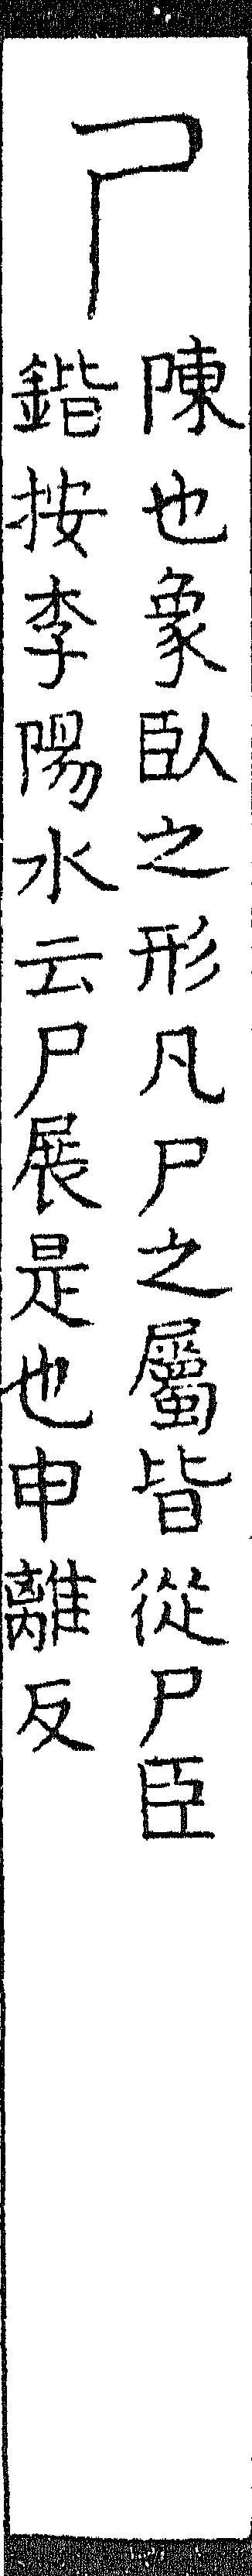 尸
陳也象臥之形凡尸之屬皆從尸臣
鍇按李陽水云尸展是也申離反